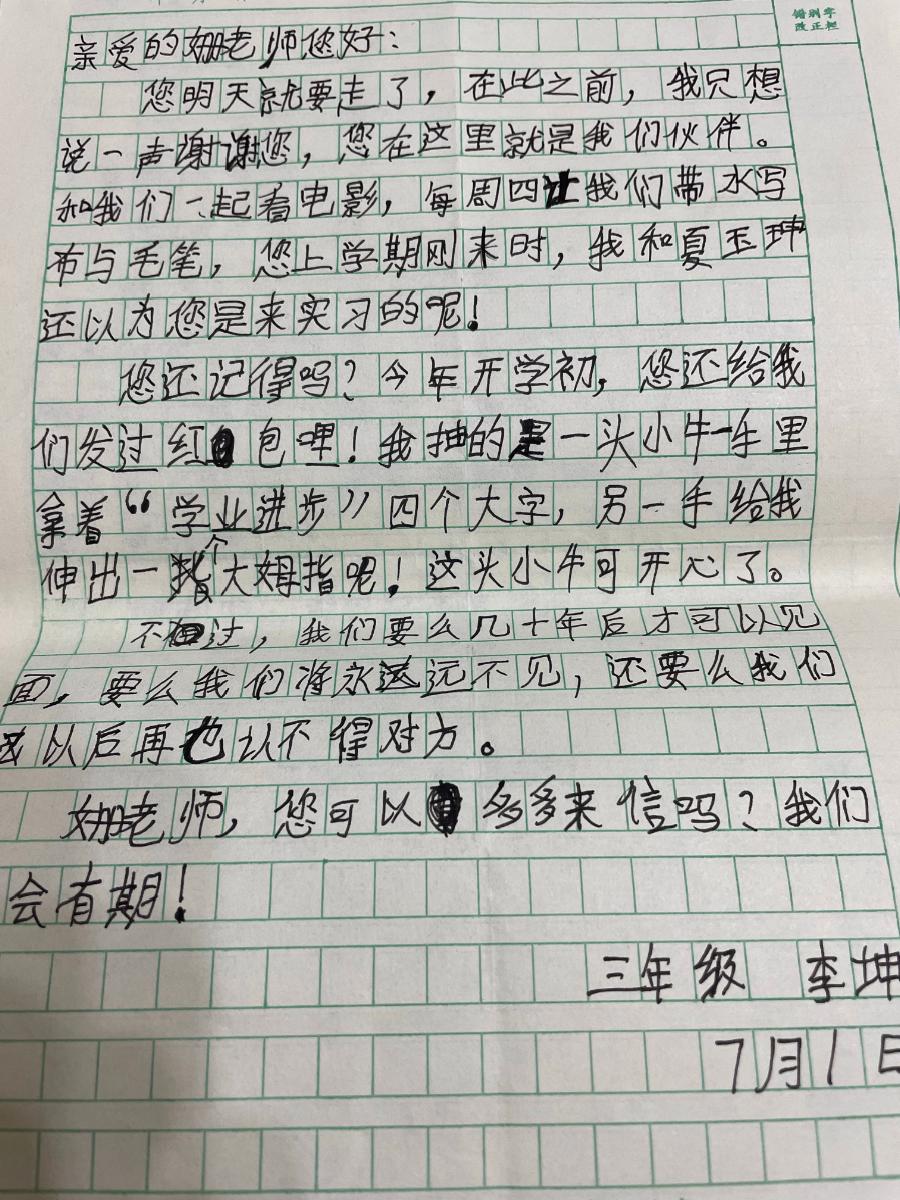 错别字
改正栏
亲爱的姗老师您好：
您明天就要走了，在此之前，我只想
说一声谢谢您，您在这里就是我们伙伴。
和我们一起看电影，每周四让我们带水写
布与毛笔，您上学期刚来时，我和夏玉坤
还以为您是来实习的呢！
您还记得吗？今年开学初，您还给我
们发过红包哩！我抽的是一头小牛一手里
拿着“学业进步”四个大字，另一手给我
伸出一个大姆指呢！这头小牛可开心了。
不过，我们要么几十年后才可以见
面，要么我们将永远不见，还要么我们
以后再也认不得对方。
姗老师，您可以多多来信吗？我们
会有期！
三年级 李坤
7月1日